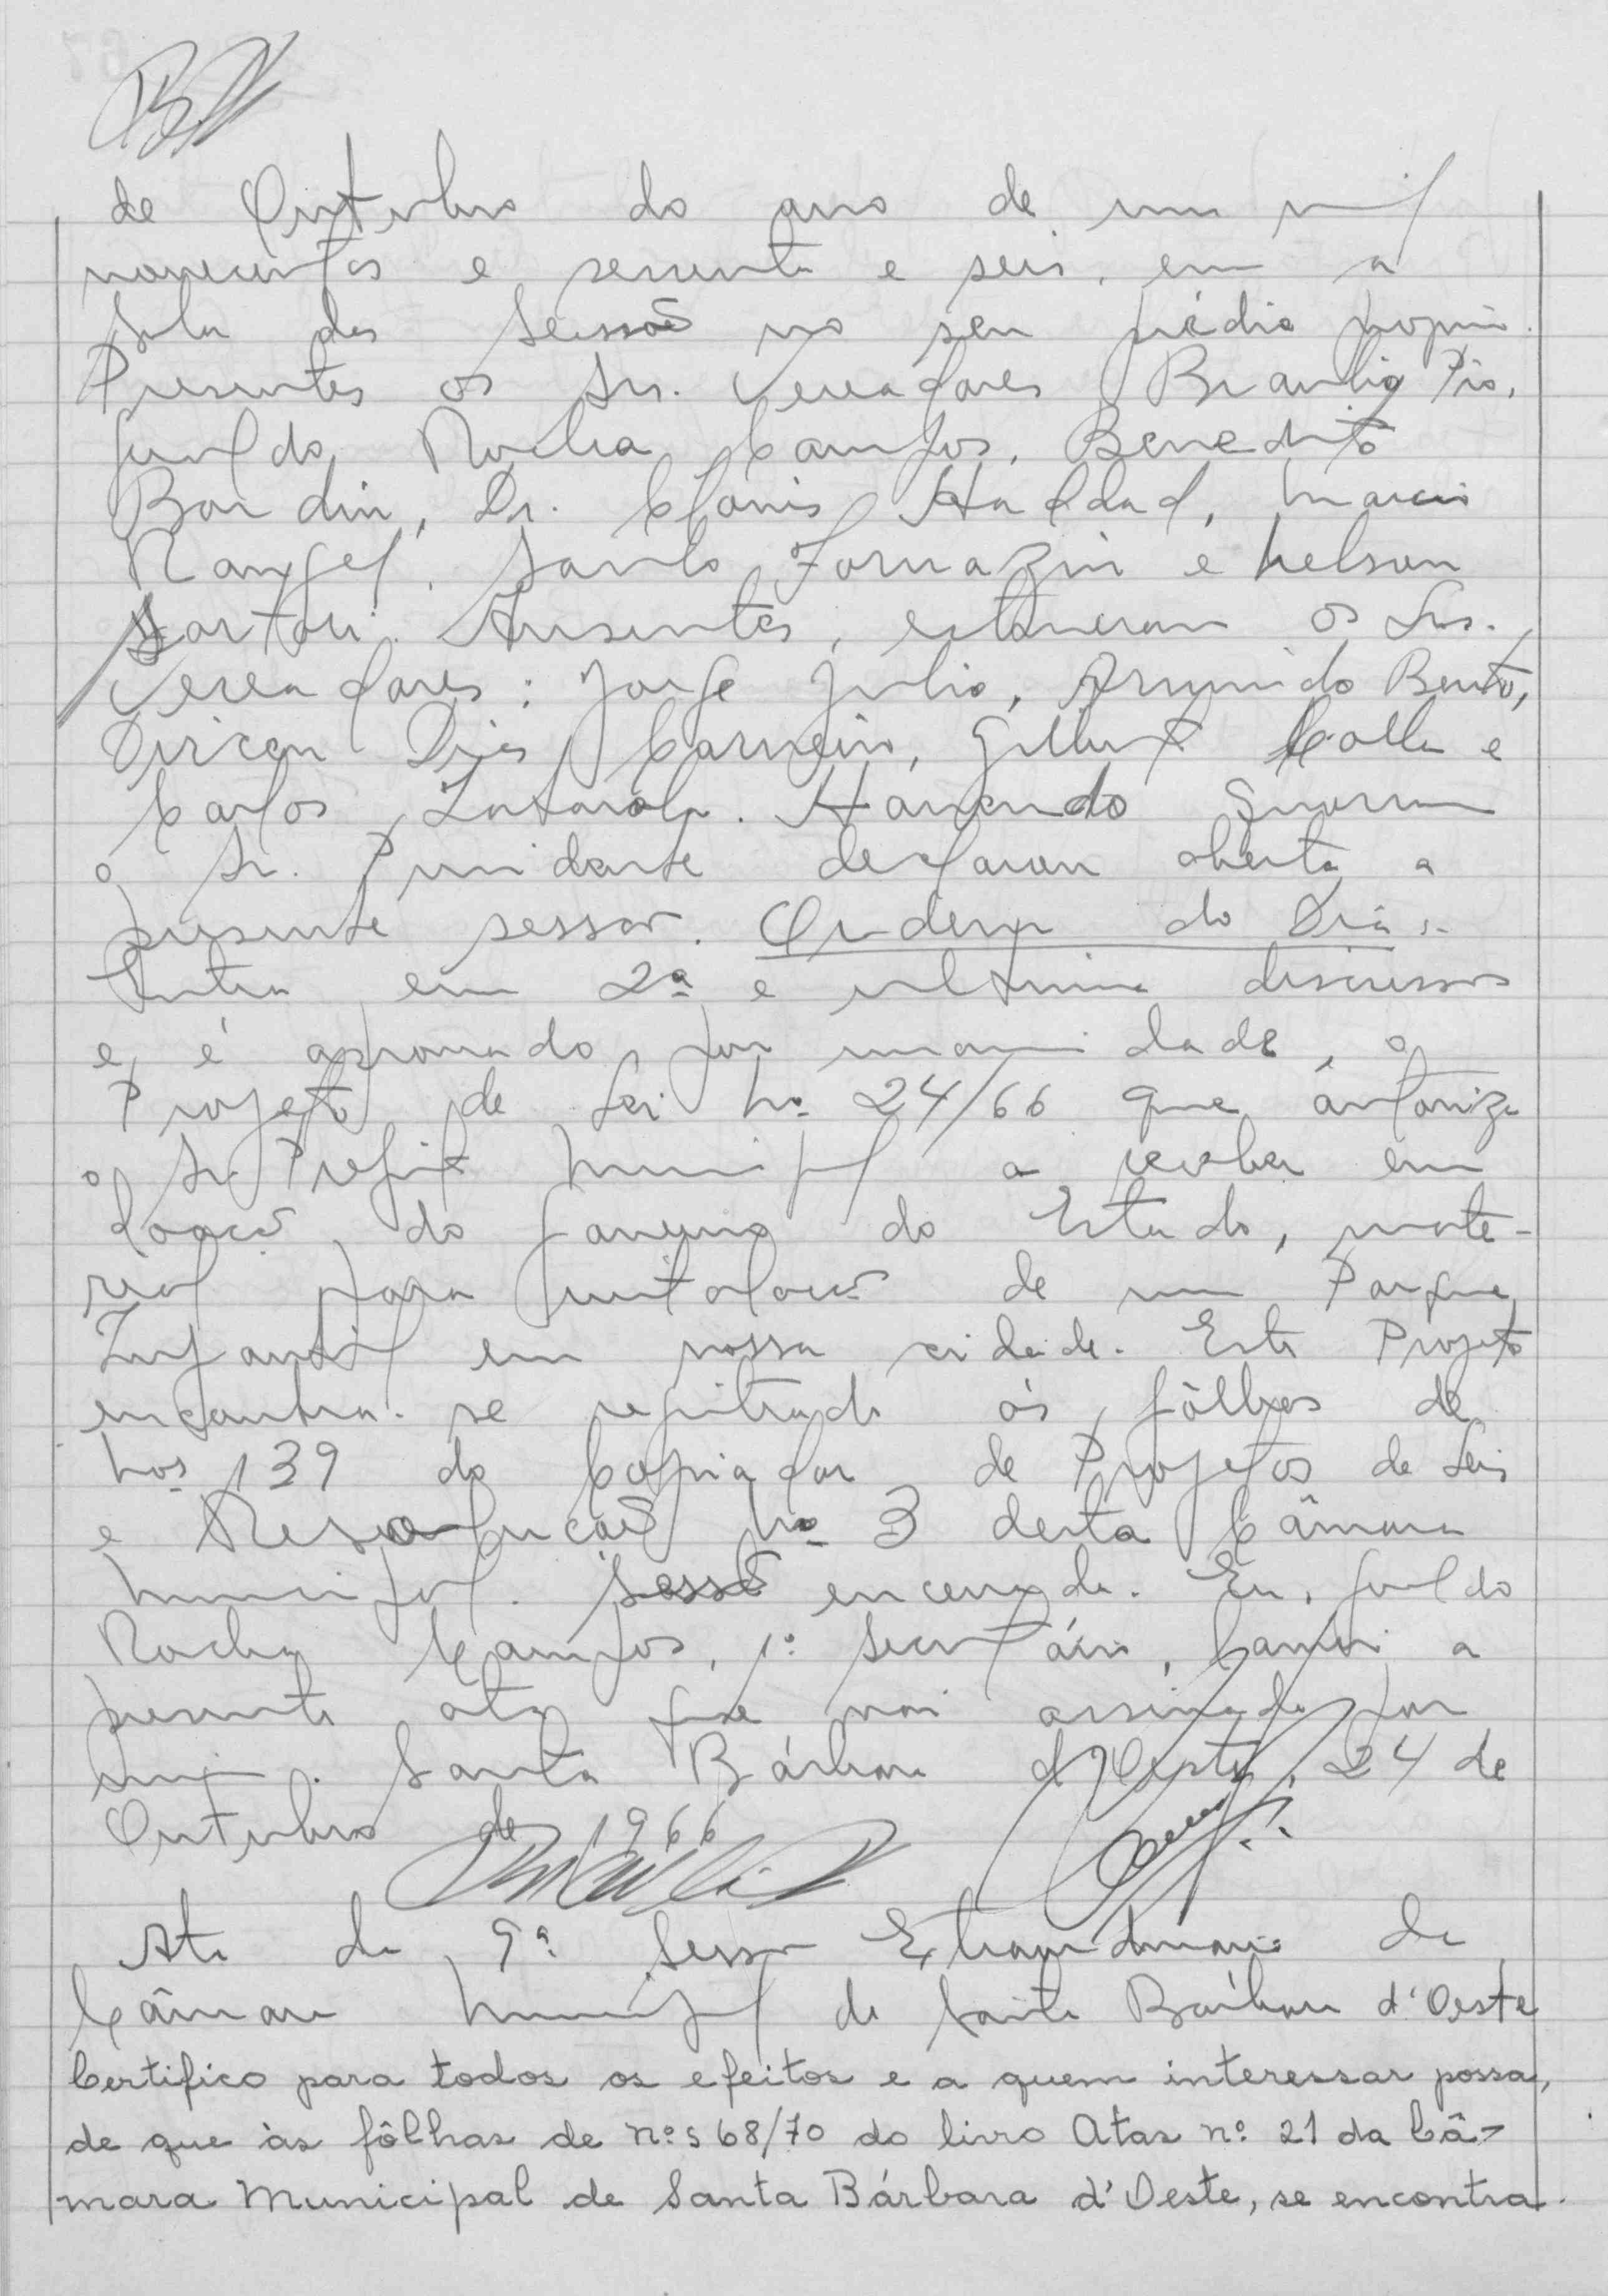 de Outubro do ano de um mil
novecentos e sessenta e seis, em a
Sala das Sessoẽs no seu prédio proprio.
Presentes os Srs. Vereadores Braulio Pio,
Geraldo Rocha Campos, Benedito
Bordin, Dr. Clovis Haddad, Marcio
Rangel, Santo Fornazin e Nelson
Sartori. Ausentes, estiveram os Srs.
Vereadores: Jorge Julio, Arminio do Bento,
Dirceu Dias Carneiro, Gilbert Colla e
Carlos. Havendo Quorum
o Sr. Presidente declarou aberta a
presente sessao. Ordem do Dia:-
Entra em 2ª e ultima discussao
e, é aprovado por unanimidade, o
Projeto de Lei Nº 24/66 que autoriza
o Sr Prefeito Municipal a receber em
doaçaõ do Governo do Estado, mate-
rial para instalaçaõ de um Parque
Infantil em nossa cidade. Este Projeto
encontra-se registrado ás fôlhas de
Nos 139 do Copiador de Projetos de Leis
e Resoluçaõ Nº 3 desta Câmara
Municipal. Sessaõ encerrada. Eu, Geraldo
Rocha Campos, 1º Secretário, lavrei a
presente ata que vai assinada por
mim. Santa Bárbara d'Oeste, 24 de
Outubro de 1966
Ata da 9ª Sessao Extraordinaria da
Câmara Municipal de Santa Bárbara d'Oeste
Certifico para todos os efeitos e a quem interessar possa,
de que às fôlhas de nºs 68/70 do livro Atas nº 21 da Câ-
mara Municipal de Santa Bárbara d'Oeste, se encontra